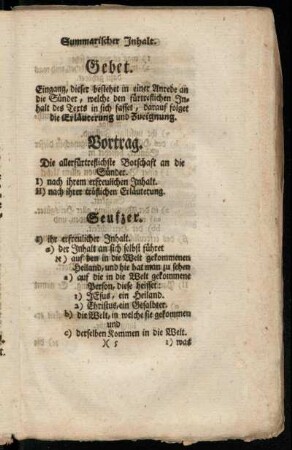 Summarischer Inhalt.
Gebet.
Eingang, dieser bestehet in einer Anrede an
die Sünder, welche den fürtreflichen In-
halt des Texts in sich fasset, darauf folget
die Erläuterung und Zueignung.
Vortrag.
Die allerfürtreflichste Botschaft an die
Sünder.
I) nach ihrem erfreulichen Inhalt.
II) nach ihrer tröstlichen Erläuterung.
Seufzer.
1) ihr erfreulicher Inhalt.
a) der Inhalt an sich selbst führet
א) auf den in die Welt gekommenen
Heiland, und hie hat man zu sehen
a) auf die in die Welt gekommene
Person, diese heisset:
1) JEsus, ein Heiland.
2) Christus, ein Gesalbter.
b) die Welt, in welche sie gekommen
und
c) derselben Kommen in die Welt.
X 5 1) was